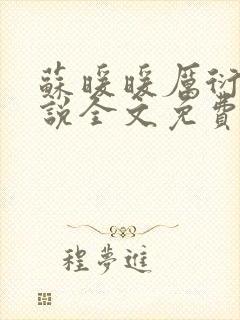 蘇暖暖厲衍
說全文免費
程夢進